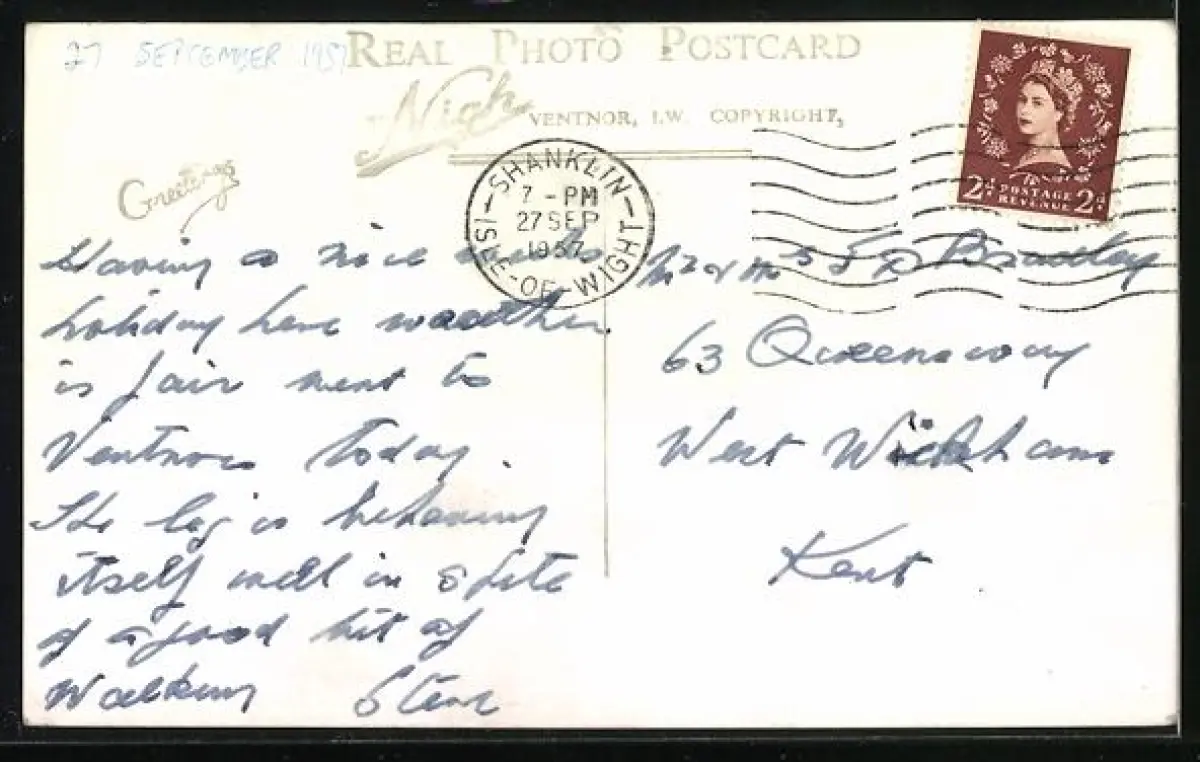 27 SEPTEMBER 1957
REAL PHOTO POSTCARD
Nigh
VENTNOR, I.W. COPYRIGHT,
Greetings
SHANKLIN
7 - PM
27 SEP
1957
ISLE-OF-WIGHT
2d POSTAGE 2d
REVENUE
Having a nice
holiday here weather
is fair went to
Ventnor today.
The leg is behaving
itself well in spite
of a good bit of
Walking Steve
Mr & Mrs Bradley
63 Queensway
West Wickham
Kent